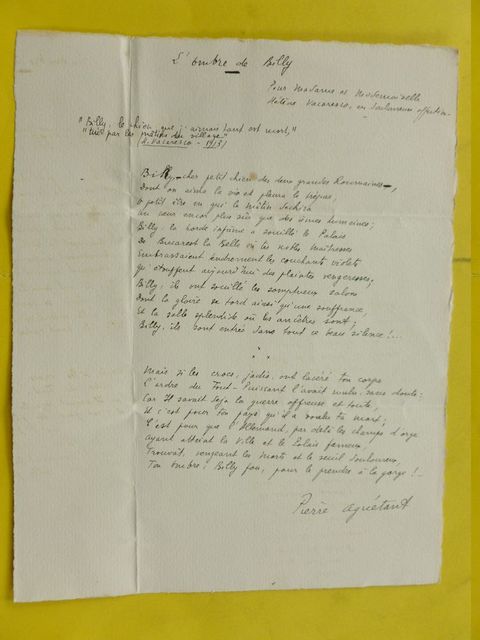 L'ombre de Billy
Pour Madame et Mademoiselle
Hélène Vacaresco, en douloureuse affection
"Billy, le chien que j'aimais tant est mort,"
"tué par les mâtins du village"
(H. Vacaresco - 1913)
Billy, - cher petit chien des deux grandes Roumaines -,
Dont on aima la vie et pleura le trépas,
O petit être en qui le mâtin déchira
Un cœur encor plus sûr que des âmes humaines;
Billy, la horde infâme a souillé le Palais
De Bucarest la Belle où les nobles maîtresses
Embrassaient tendrement les couchants violets
Qu'étouffent aujourd'hui des plaintes vengeresses;
Billy, ils ont souillé les somptueux salons
Dont la gloire se tord ainsi qu'une souffrance,
Et la salle splendide où les ancêtres sont,
Billy, ils sont entrés dans tout ce beau silence !...
* *
Mais si les crocs, jadis, ont lacéré ton corps
L'ordre du Tout-Puissant l'avait voulu, sans doute:
Car Il savait déjà la guerre affreuse et toute,
Et c'est pour ton pays qu'il a voulu ta mort;
C'est pour que l'Allemand, par delà les champs d'orge
Ayant atteint la Ville et le Palais fameux
Trouvât, vengeant les morts et le seuil douloureux
Ton ombre, Billy fou, pour le prendre à la gorge !
Pierre Aguétant